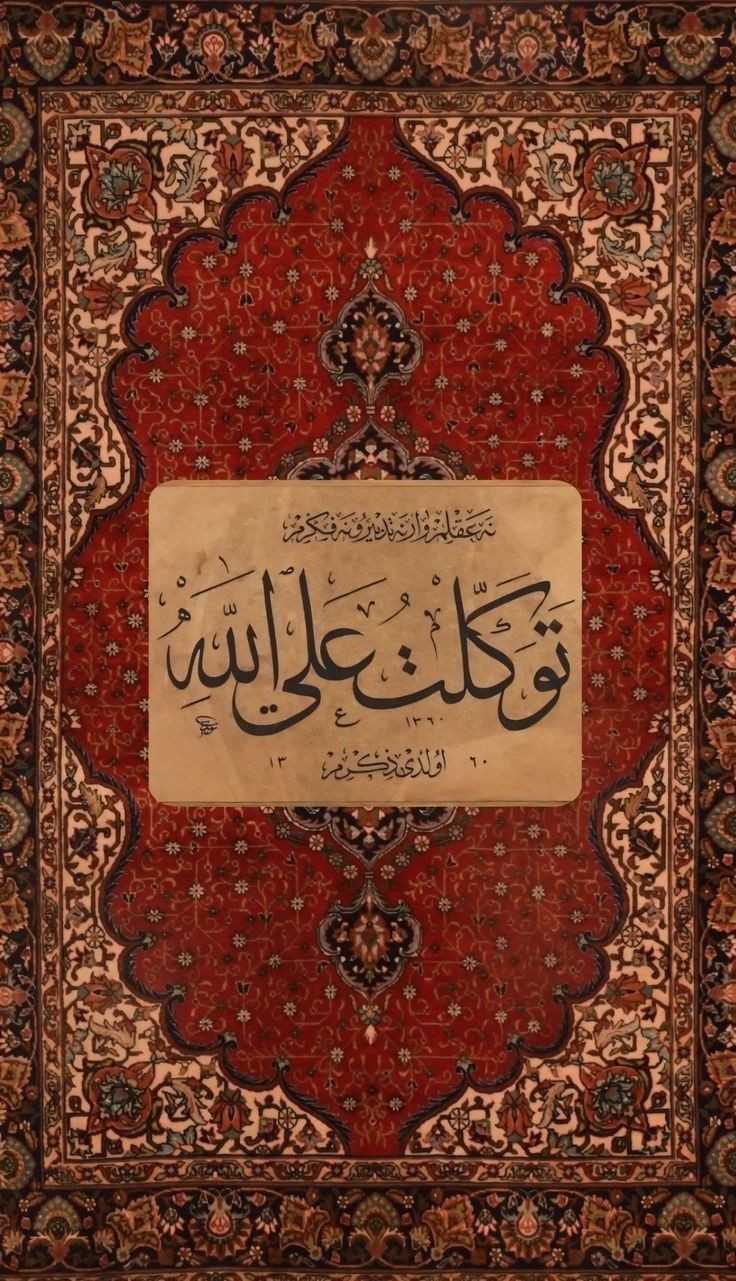 نه عقلم وار نه تدبير و نه فكرم
توكّلتُ علی اللّٰه
ع ١٣٦٠
١٣ اولدی ذكرم ٦٠